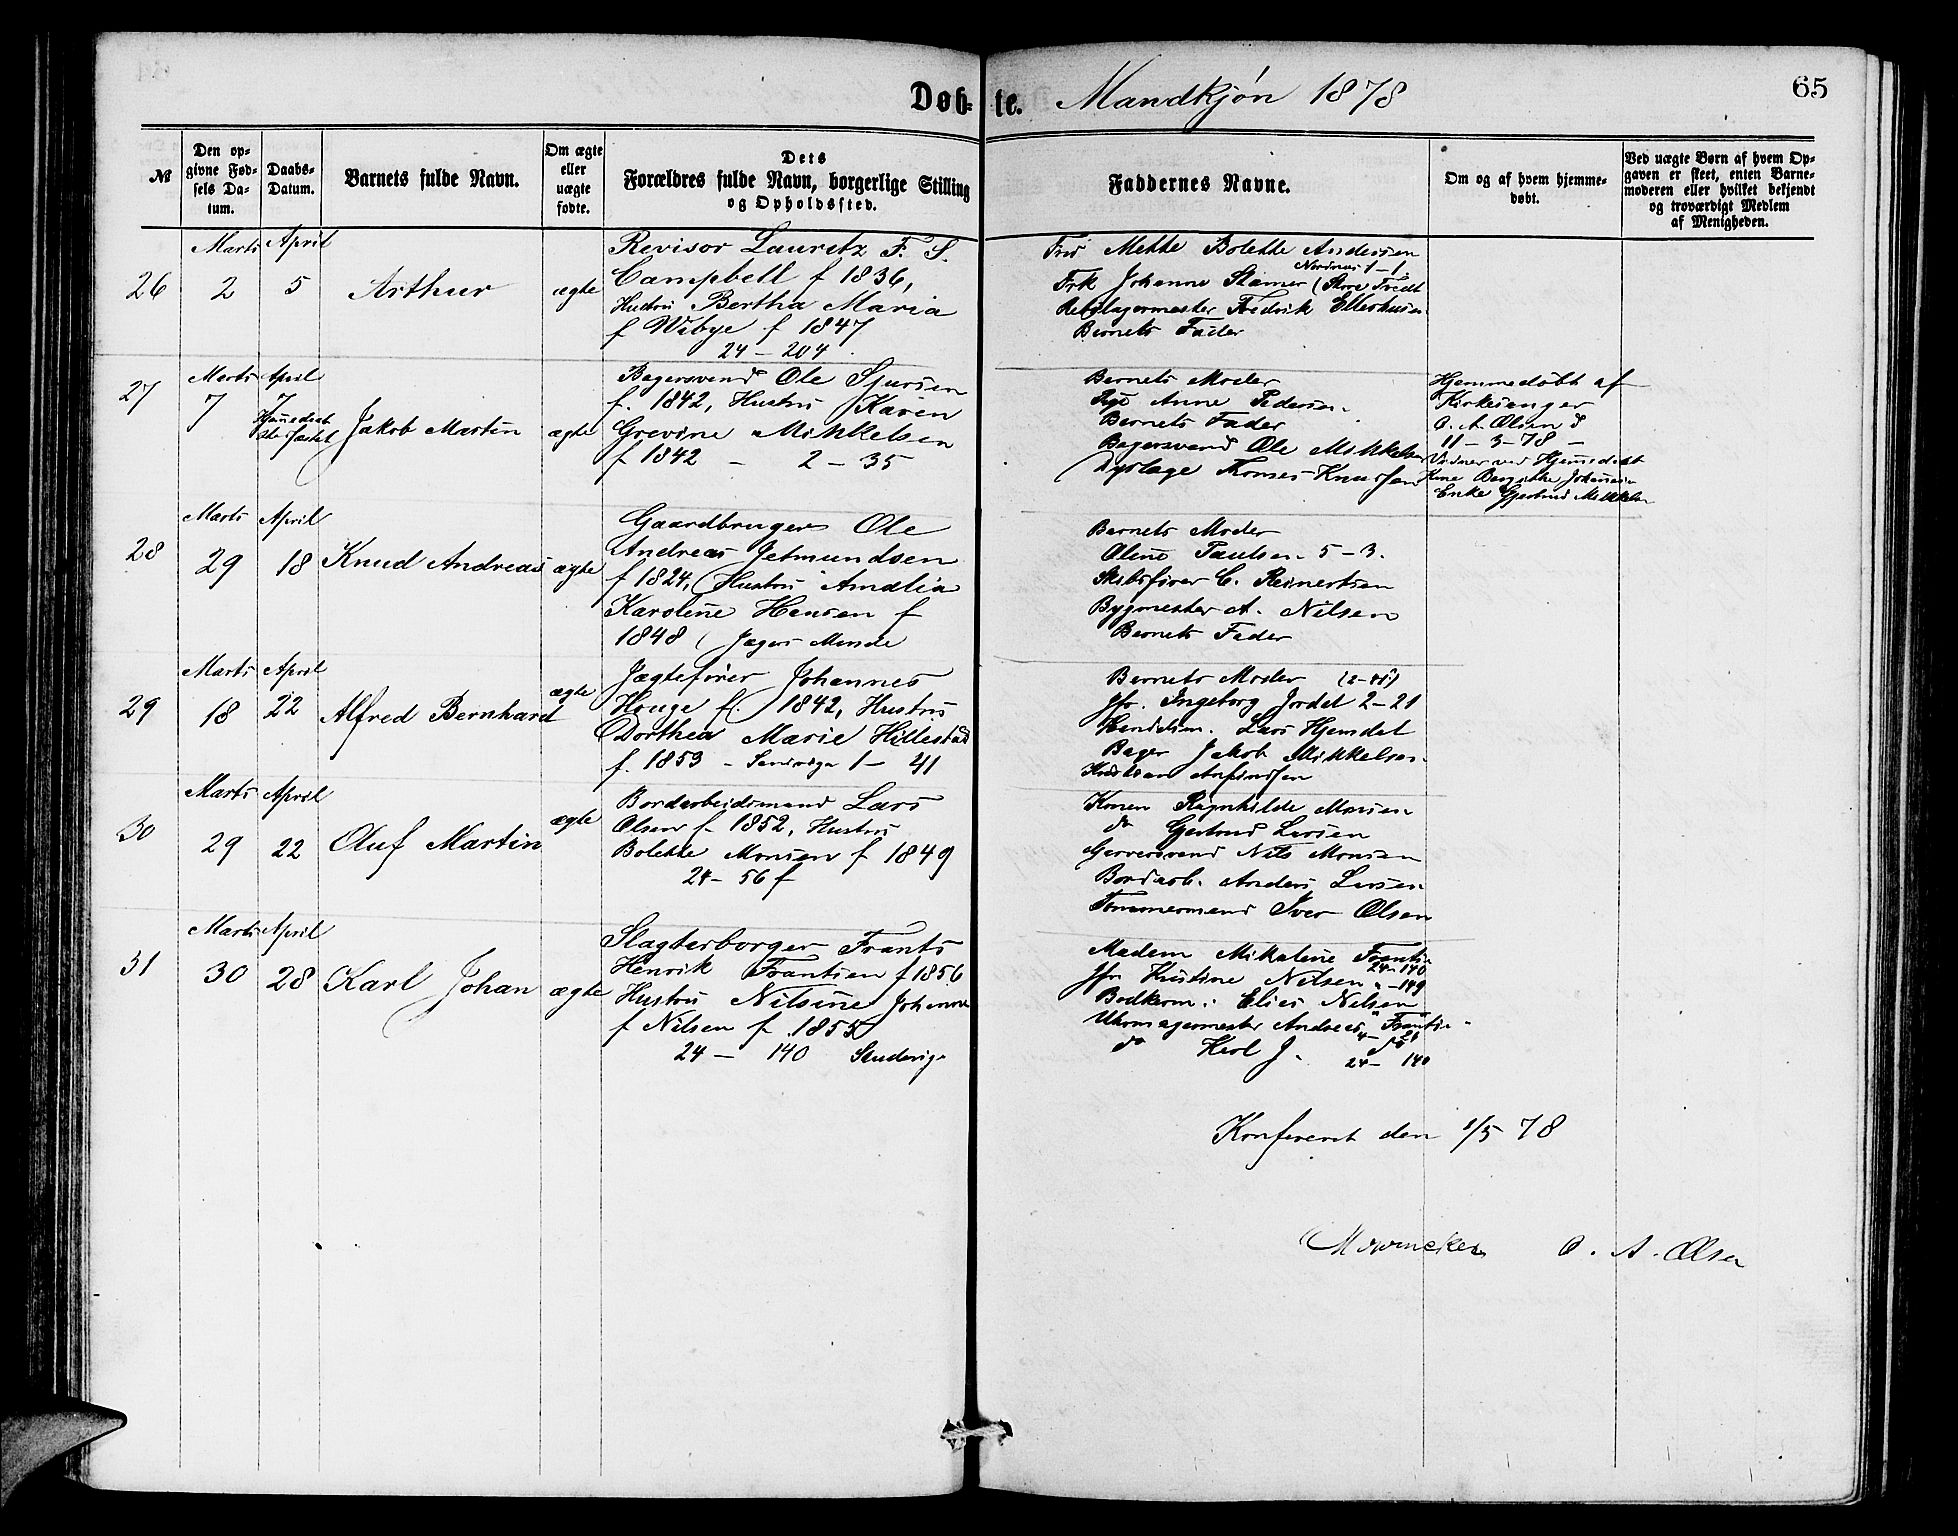 Døb-te. Mandkjøn 1878
65
№
Den opgivne Fødsels Datum.
Daabs-Datum.
Barnets fulde Navn.
Om ægte eller uægte fødte.
Dets
Forældres fulde Navn, borgerlige Stilling
og Opholdssted.
Faddernes Navne.
Om og af hvem hjemmedøbt.
Ved uægte Børn af hvem Opgaven er skeet, enten Barnemoderen eller hvilket bekjendt og troværdigt Medlem af Menigheden.
26
Marts
2
April
5
Arthur
ægte
Revisor Lauretz F. S.
Campbell f 1836,
Hustru Bertha Maria
f Wibye f 1847
24 - 204
Mette Bolette Andersen
Nordnes 1-1
Frk Johanne Stamer
Rebslagermester Fredrik Ellerhusen
Barnets Fader
27
Marts
7
April
7
Jakob Martin
ægte
Bagersvend Ole Sjursen
f. 1842, Hustru Karen
Grevine Mikkelsen
f 1842 - 2 - 35
Barnets Moder
Pige Anne Pedersen
Barnets Fader
Bagersvend Ole Mikkelsen
Thomas Knudsen
Hjemmedøbt af
Kirkesanger
O. A. Olsen d
11 - 3 - 78 -
Vidner ved Hjemmedaab
Kone Johannesen
Enke Gjertrud Mikkelsen
28
Marts
29
April
18
Knud Andreas
ægte
Gaardbruger Ole
Andreas Jetmundsen
f 1824, Hustru Amalia
Karoline Hansen f
1848
Barnets Moder
Oline Paulsen 5-3.
Skibsfører C. Reinertsen
Bygmester A. Nilsen
Barnets Fader
29
Marts
18
April
22
Alfred Bernhard
ægte
Jægtefører Johannes
Houge f. 1842, Hustru
Dorthea Marie Hillestad
f. 1853 - Sandvigen 1 - 41
Barnets Moder
Jfr. Ingeborg Jordal 2-21
Lars Hjemdal
Bager Jakob Mikkelsen
Kristian Anfindsen
30
Marts
29
April
22
Oluf Martin
ægte
Bordarbeidsmand Lars
Olsen f. 1852, Hustru
Bolette Monsen f 1849
24 - 56 f
Konen Ragnhilde Monsen
do Gjertrud Larsen
Garversvend Nils Monsen
Bordarb. Anders Larsen
Tømmermand Iver Olsen
31
Marts
30
April
28
Karl Johan
ægte
Slagterborger Frants
Henrik Frantsen f 1856
Hustru Nilsine Johanne
f Nilsen f. 1855
24 - 140 Sandvigen
Madam Mikaline Frantsen
24-140
Jfr Kristine Nilsen " - 149
Bødkerm. Elias Nelsen
Uhrmagermester Andreas Frantsen
do Karl J. do
24 - 140
Konfereret den 1/5 78
O. A. Olsen